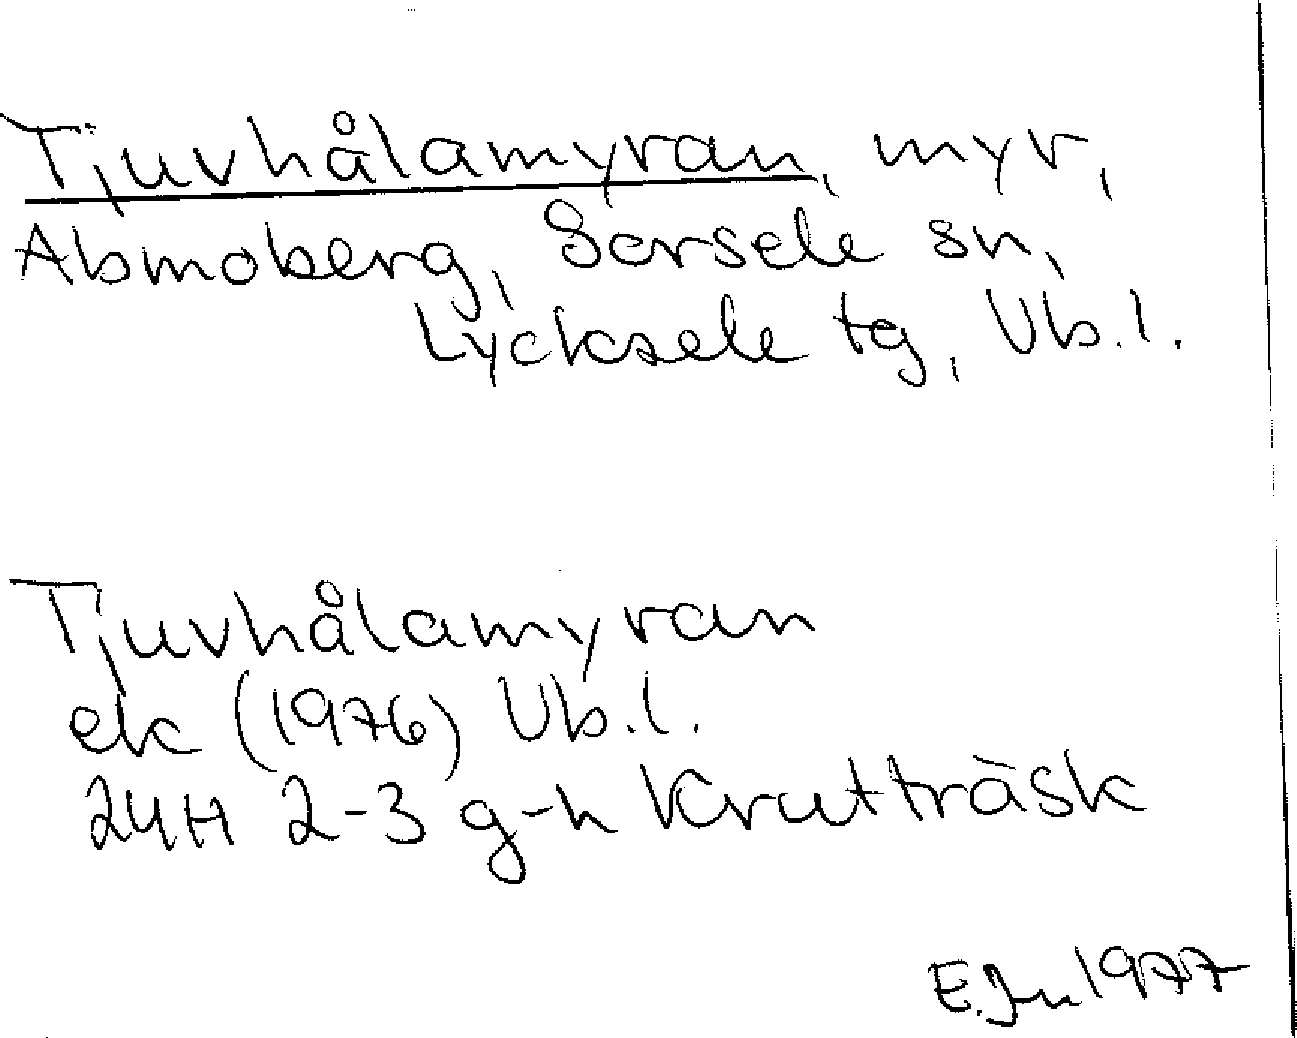 Tjuvhålamyran, myr,
Abmoberg, Sorsele sn,
Lycksele tg, Vb.l.
Tjuvhålamyran
ek (1976) Vb.l.
24H 2-3 g-h Krutträsk
E.Jn 1977